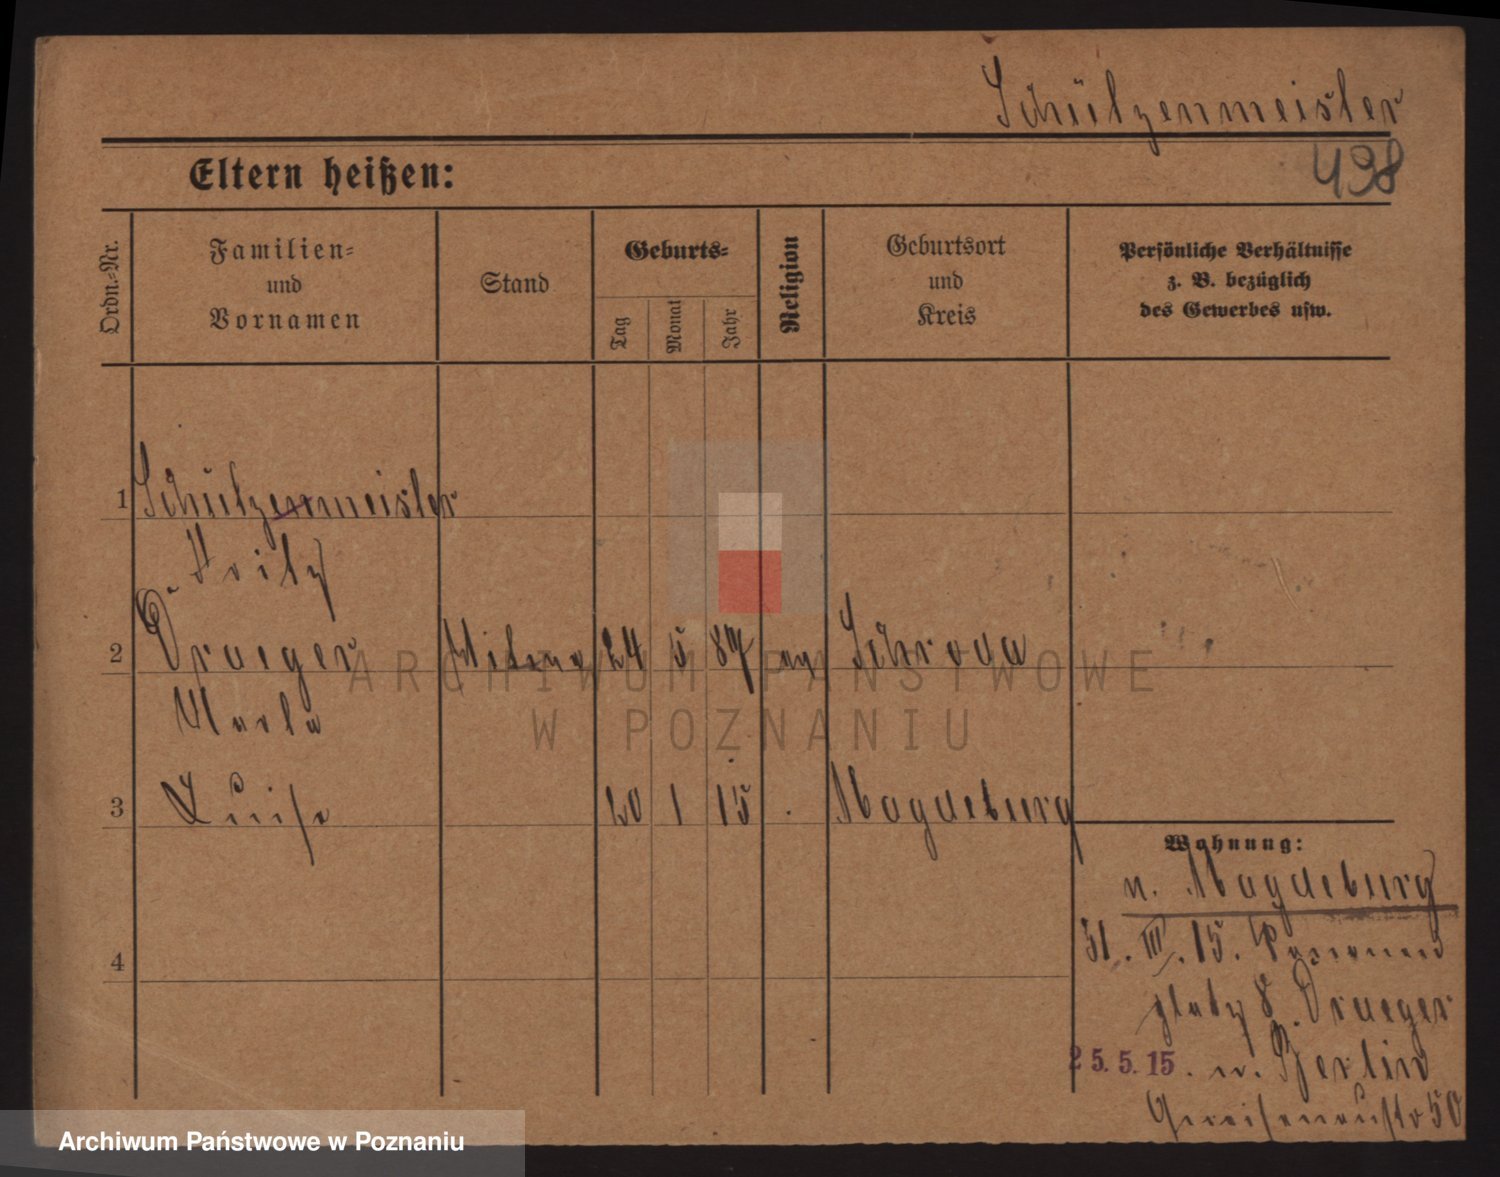 Schützenmeister
498
Eltern heißen:
Ordn.=Nr.
Familien=
und
Vornamen
Stand
Geburts=
Tag
Monat
Jahr
Religion
Geburtsort
und
Kreis
Persönliche Verhältnisse
z. B. bezüglich
des Gewerbes usw.
1 Schützenmeister
Fritz
2 Draeger 24 5 87 ev Schroda
Marta
3 Luise 20 1 15 . Magdeburg
Wohnung:
n. Magdeburg
31. III. 15.
platz 8. Draeger
4
25.5.15. n. Berlin
50
ARCHIWUM PAŃSTWOWE
W POZNANIU
Archiwum Państwowe w Poznaniu